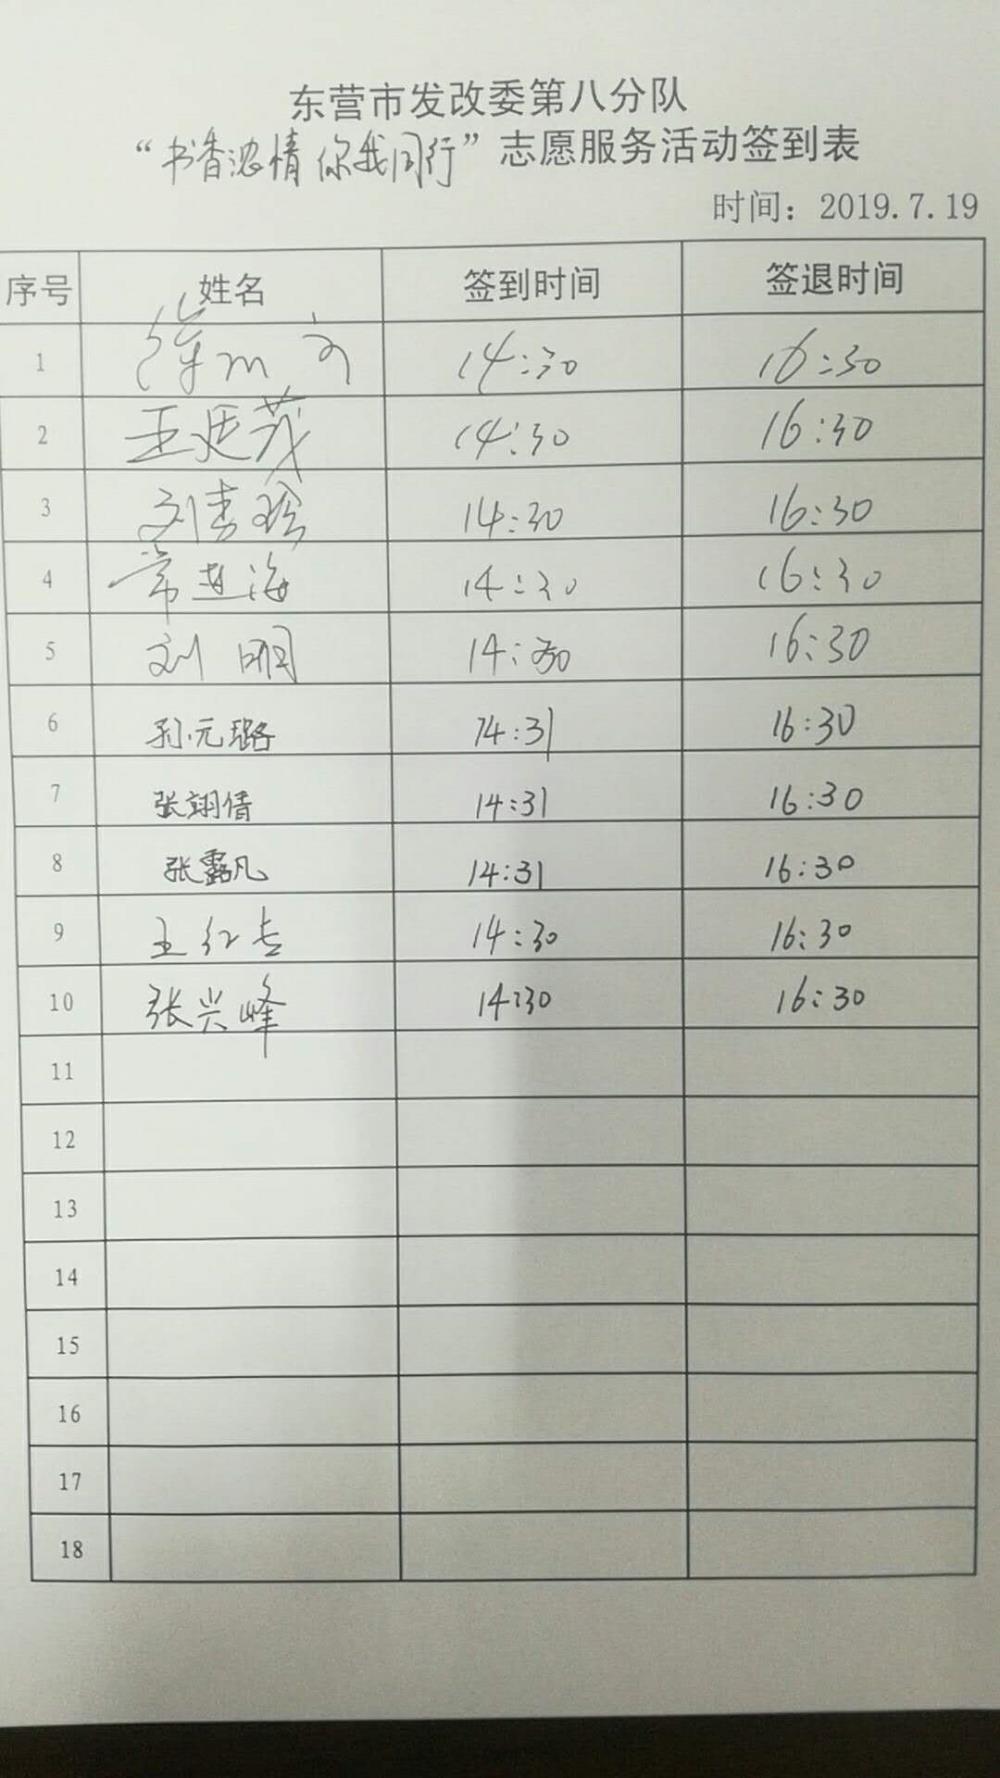 东营市发改委第八分队
“书香浓情 你我同行”志愿服务活动签到表
时间：2019.7.19
序号 姓名 签到时间 签退时间
1 14:30 16:30
2 王廷茂 14:30 16:30
3 刘秀珍 14:30 16:30
4 常进海 14:30 16:30
5 刘明 14:30 16:30
6 孙元璐 14:31 16:30
7 张翊倩 14:31 16:30
8 张露凡 14:31 16:30
9 王红 14:30 16:30
10 张兴峰 14:30 16:30
11
12
13
14
15
16
17
18